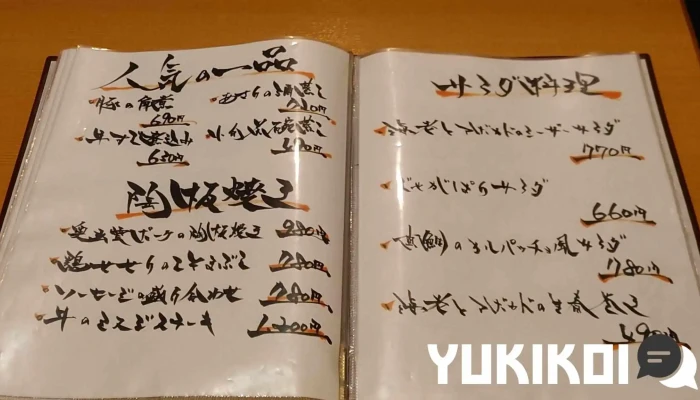 人気の一品
豚の角煮
690円
710円
牛すじ煮込み
630円
490円
陶板焼き
陶板焼き 980円
鶏せせりのてまぶし 780円
ソーセージの盛り合わせ 780円
牛のさいころステーキ 1,200円
サラダ料理
海老とアボカドのシーザーサラダ
770円
じゃがぱりサラダ
660円
真鯛のカルパッチョ風サラダ
780円
海老とアボカドの生春巻き
690円
YUKIKOI